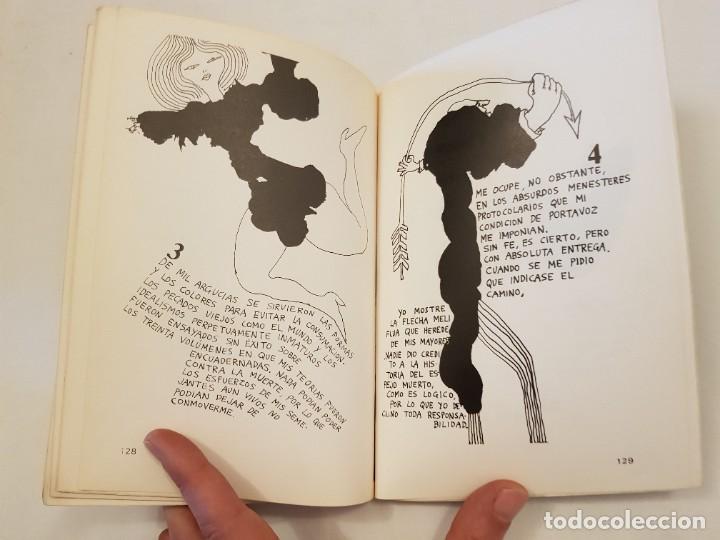 3
DE MIL ARGUCIAS SE SIRVIERON LAS FORMAS
Y LOS COLORES PARA EVITAR LA CONSUMACIÓN.
LOS PECADOS VIEJOS COMO EL MUNDO Y LOS
IDEALISMOS PERPETUAMENTE INMATUROS
FUERON ENSAYADOS SIN ÉXITO SOBRE
LOS TREINTA VOLUMENES EN QUE MIS TEORIAS FUERON
ENCUADERNADAS. NADA PODIAN PODER
CONTRA LA MUERTE, POR LO QUE
LOS ESFUERZOS DE MIS SEME-
JANTES AUN VIVOS NO
PODIAN DEJAR DE
CONMOVERME.
128
4
ME OCUPE, NO OBSTANTE,
EN LOS ABSURDOS MENESTERES
PROTOCOLARIOS QUE MI
CONDICION DE PORTAVOZ
ME IMPONIAN.
SIN FE, ES CIERTO, PERO
CON ABSOLUTA ENTREGA.
CUANDO SE ME PIDIO
QUE INDICASE EL
CAMINO,
YO MOSTRE
LA FLECHA MELI
FLUA QUE HEREDE
DE MIS MAYORES.
NADIE DIO CREDI
TO A LA HIS
TORIA DEL ES
PEJO MUERTO,
COMO ES LOGICO,
POR LO QUE YO DE
CLINO TODA RESPONSA
BILIDAD.
129
todocoleccion
todocoleccion.net